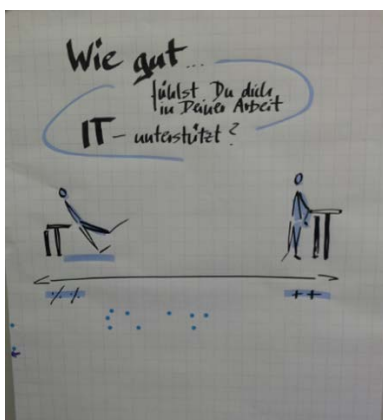 Wie gut...
fühlst Du dich
in Deiner Arbeit
IT - unterstützt?
IT IT
·/. ·/. ++